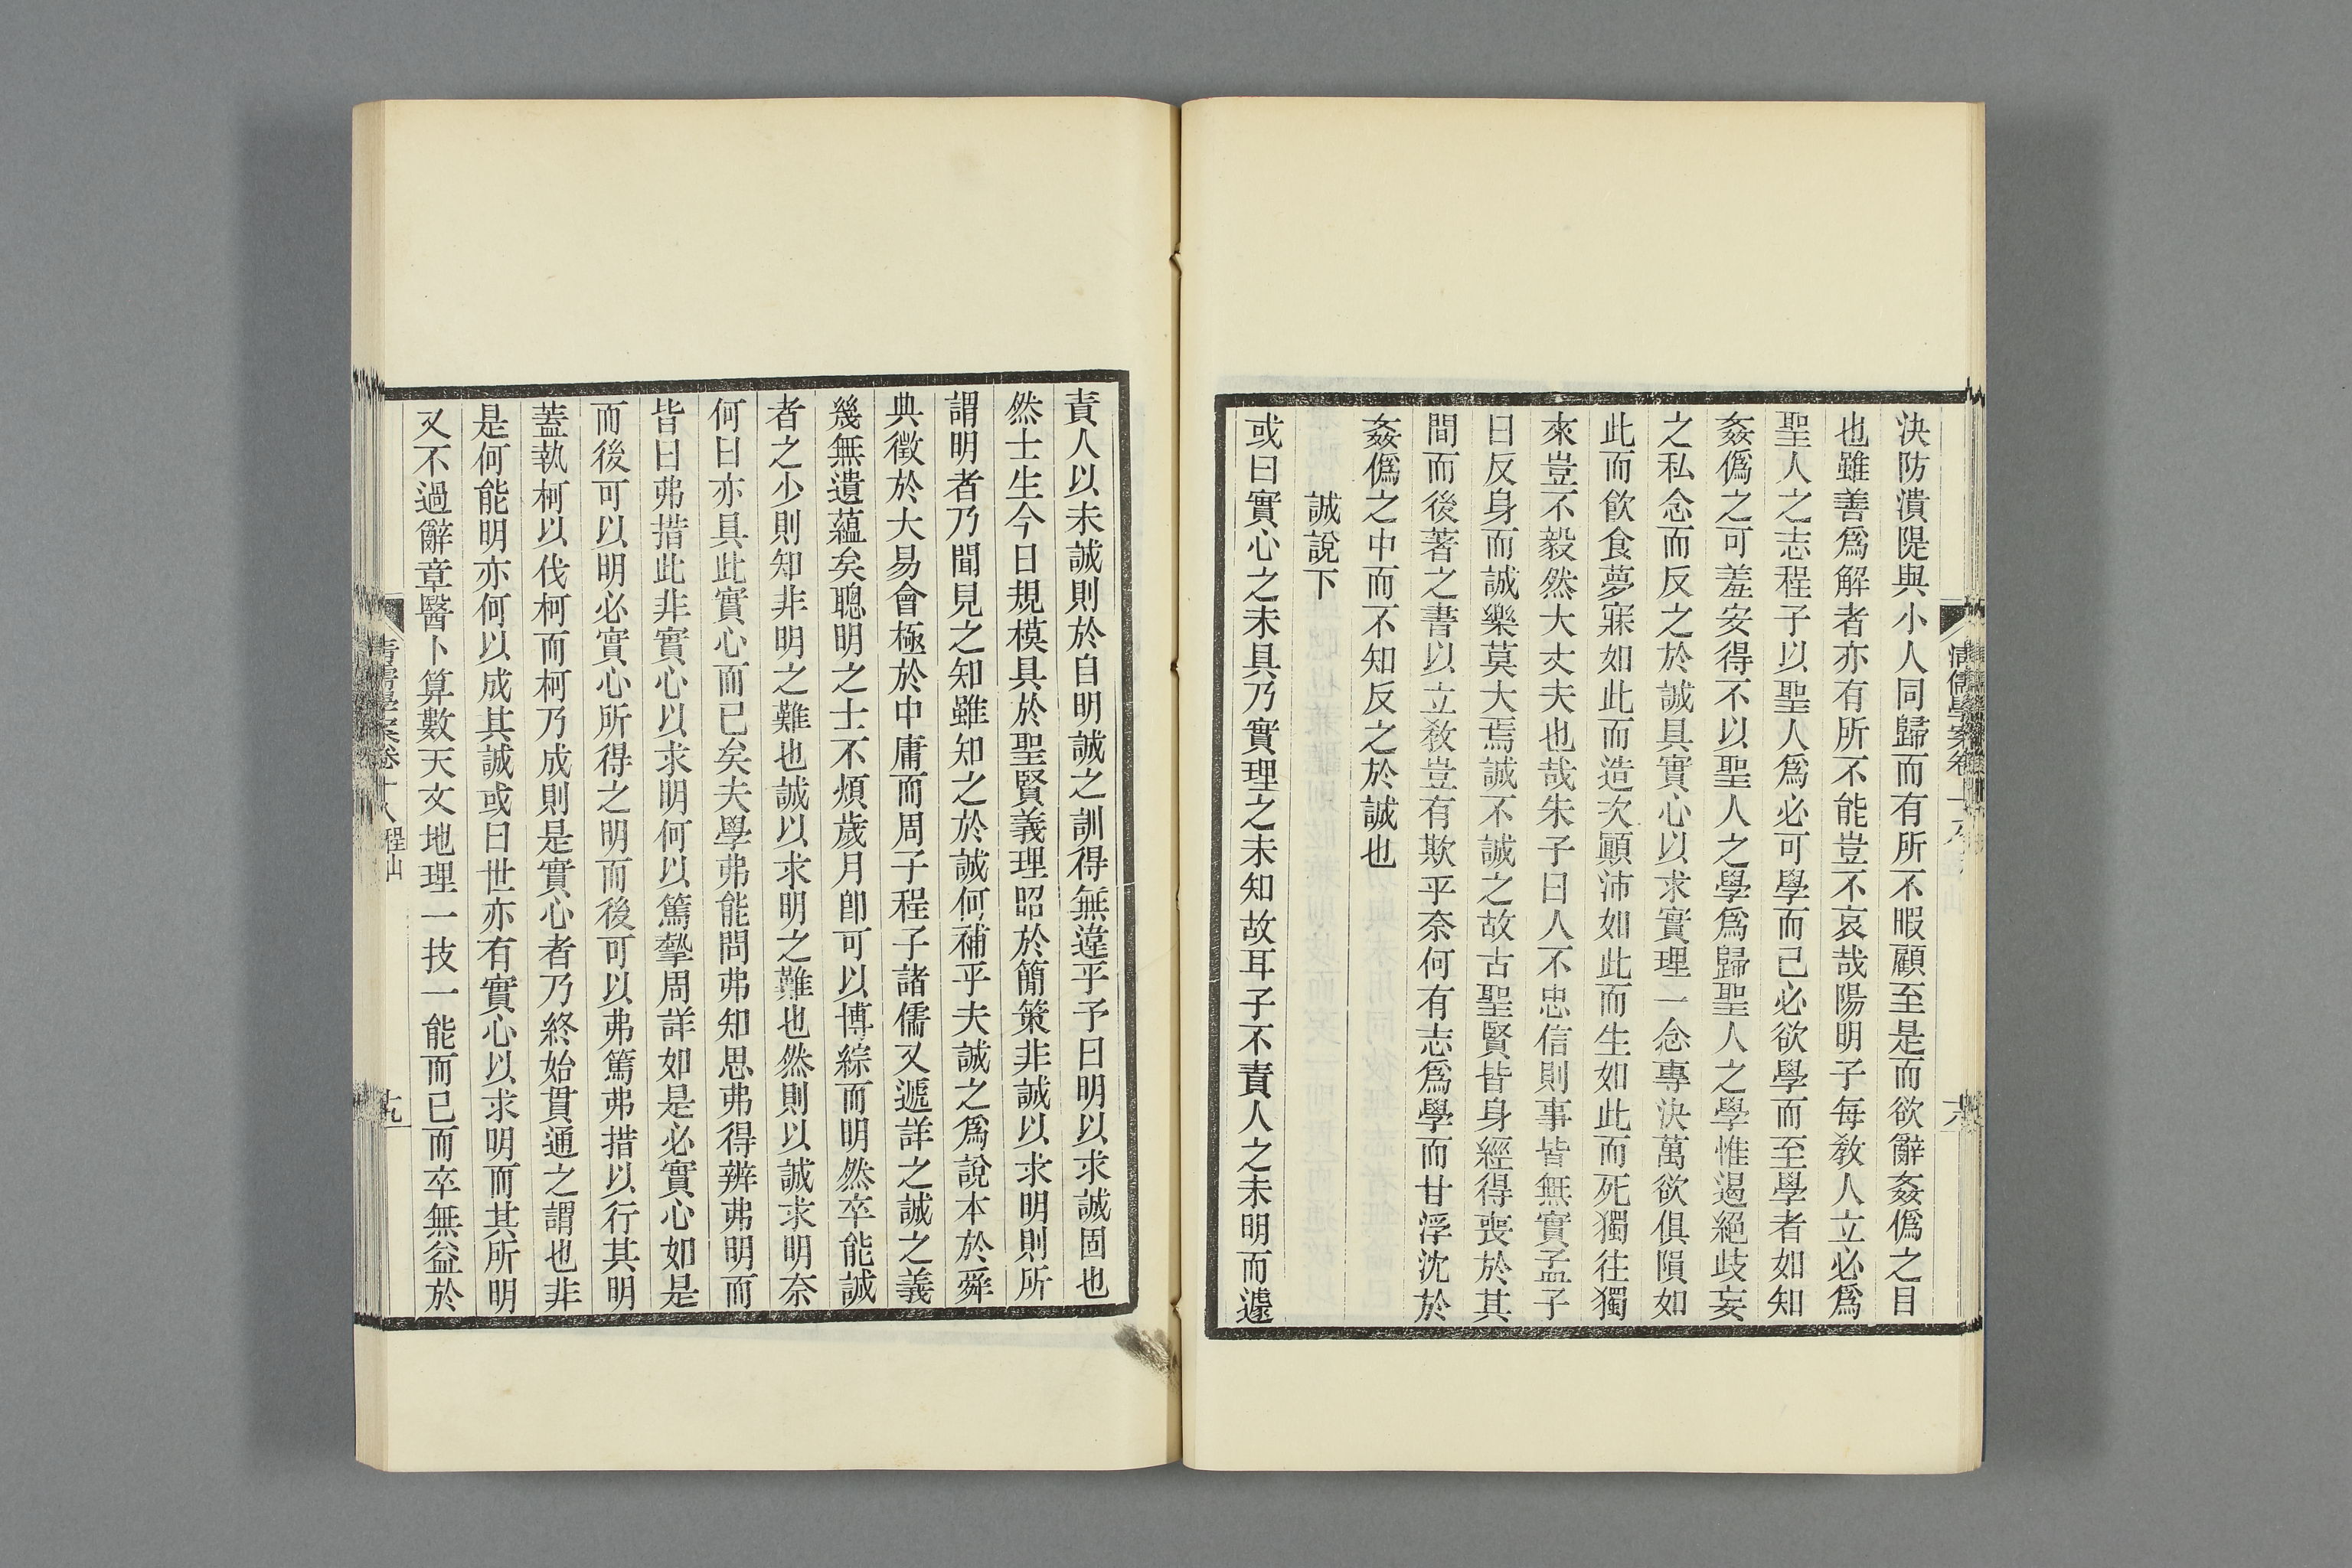 決防潰隄與小人同歸而有所不暇顧至是而欲辭姦僞之目
也雖善爲解者亦有所不能豈不哀哉陽明子每敎人立必爲
聖人之志程子以聖人爲必可學而己必欲學而至學者如知
姦僞之可羞安得不以聖人之學爲歸聖人之學惟遏絕歧妄
之私念而反之於誠具實心以求實理一念專決萬欲俱隕如
此而飮食夢寐如此而造次顚沛如此而生如此而死獨往獨
來豈不毅然大丈夫也哉朱子曰人不忠信則事皆無實孟子
曰反身而誠樂莫大焉誠不誠之故古聖賢皆身經得喪於其
間而後著之書以立敎豈有欺乎奈何有志爲學而甘浮沈於
姦僞之中而不知反之於誠也
誠說下
或曰實心之未具乃實理之未知故耳子不責人之未明而遽
責人以未誠則於自明誠之訓得無違乎予曰明以求誠固也
然士生今日規模具於聖賢義理昭於簡策非誠以求明則所
謂明者乃聞見之知雖知之於誠何補乎夫誠之爲說本於舜
典徵於大易會極於中庸而周子程子諸儒又遞詳之誠之義
幾無遺蘊矣聰明之士不煩歲月卽可以博綜而明然卒能誠
者之少則知非明之難也誠以求明之難也然則以誠求明奈
何曰亦具此實心而已矣夫學弗能問弗知思弗得辨弗明而
皆曰弗措此非實心以求明何以篤摯周詳如是必實心如是
而後可以明必實心所得之明而後可以弗篤弗措以行其明
蓋執柯以伐柯而柯乃成則是實心者乃終始貫通之謂也非
是何能明亦何以成其誠或曰世亦有實心以求明而其所明
又不過辭章醫卜算數天文地理一技一能而已而卒無益於
清儒學案卷十八 程山
十九